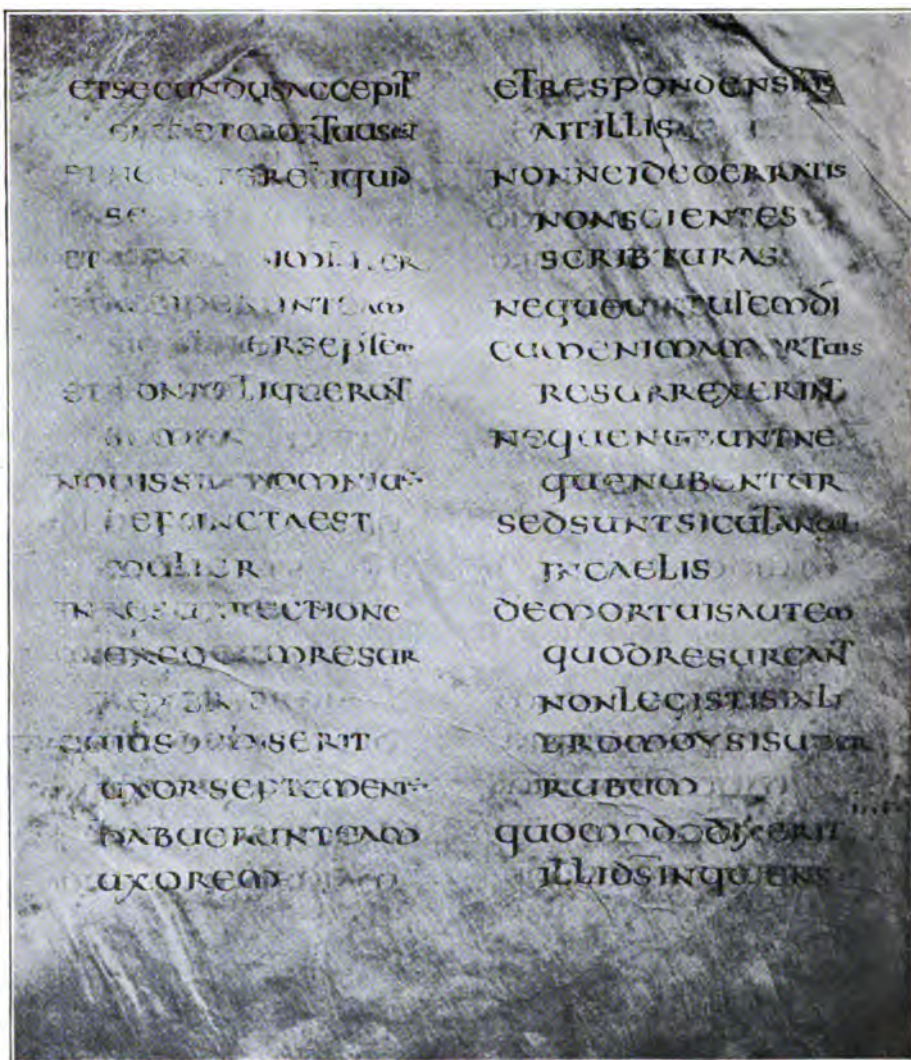 ETSECUNDUSACCEPIT
ETMORTUUSEST
RELIQUID
SE
ET SIMILITER
ACCIPERUNTEAM
SEPTEM
ET NON RELIQUERUNT
SEMEN
NOUISSIMA OMNIU
DEFUNCTAEST
MULIER
INRESURRECTIONE
CUMRESUR
REXERINT
CUIUS ERIT
UXORSEPTEMENI
HABUERUNTEAM
UXOREM
ETRESPONDENSIHS
AITILLIS
NONNEIDEOERRATIS
NONSCIENTES
SCRIBTURAS
NEQUEUIRTUTEMDI
CUMENIMAMORTUIS
RESURREXERINT
NEQUENUBUNTNE
QUENUBENTUR
SEDSUNTSICUTANGELI
INCAELIS
DEMORTUISAUTEM
QUODRESURGANT
NONLEGISTISINLI
BROMOYSISUPER
RUBUM
QUOMODODIXERIT
ILLIDSINQUIENS